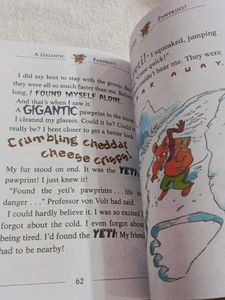 A GIGANTIC PAWPRINT!
I did my best to stay with the group. But
they were all so much faster than me. Before
long, I FOUND MYSELF ALONE.
And that's when I saw it.
A GIGANTIC pawprint in the snow.
I cleaned my glasses. Could it be? Could it
really be? I bent closer to get a better look.
Crumbling cheddar
cheese crisps!
My fur stood on end. It was the YETI's
pawprint! I just knew it!
"Found the yeti's pawprints . . . life in
danger . . ." Professor von Volt had said.
I could hardly believe it. I was so excited I
forgot about the cold. I even forgot about
being tired. I'd found the YETI! My friend
had to be nearby!
62
PAWPRINT!
!" I squeaked, jumping
me quick!"
couldn't hear me. They were
FAR AWAY.